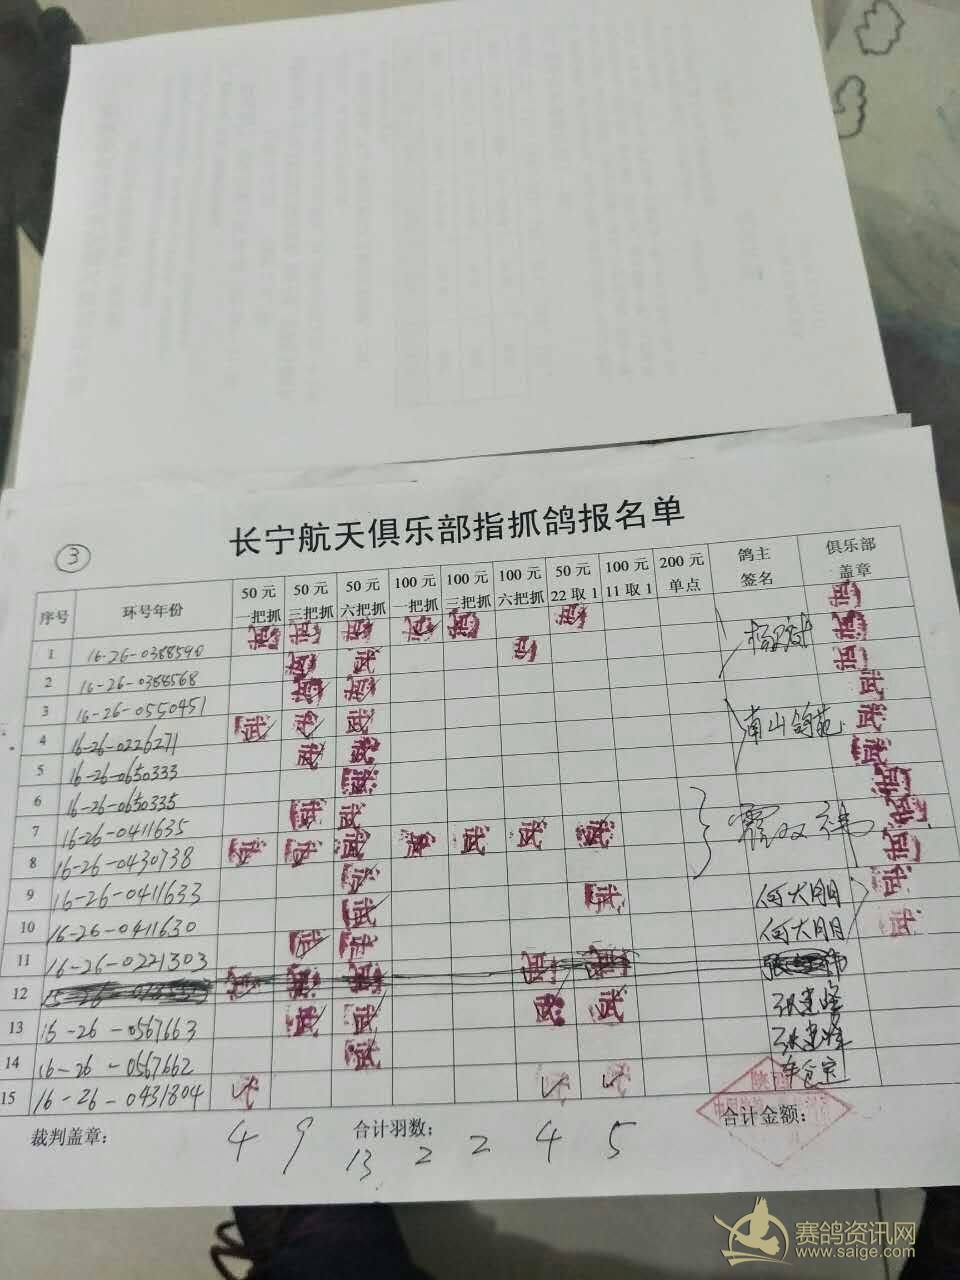 ③
长宁航天俱乐部指抓鸽报名单
序号 环号年份 50 元 一把抓 50 元 三把抓 50 元 六把抓 100 元 一把抓 100 元 三把抓 100 元 六把抓 50 元 22 取 1 100 元 11 取 1 200 元 单点 鸽主 签名 俱乐部 盖章
1 16-26-0388590
2 16-26-0388568
3 16-26-0550451
4 16-26-0226271 南山鸽苑
5 16-26-0650333
6 16-26-0650335
7 16-26-0411635
8 16-26-0430738
9 16-26-0411633 何大朋
10 16-26-0411630 何大朋
11 16-26-0221303
12
13 15-26-0567663 张建峰
14 16-26-0567662 张建峰
15 16-26-0431804
裁判盖章: 合计羽数: 合计金额:
4 9 13 2 2 4 5
陕西
赛鸽资讯网
www.saige.com